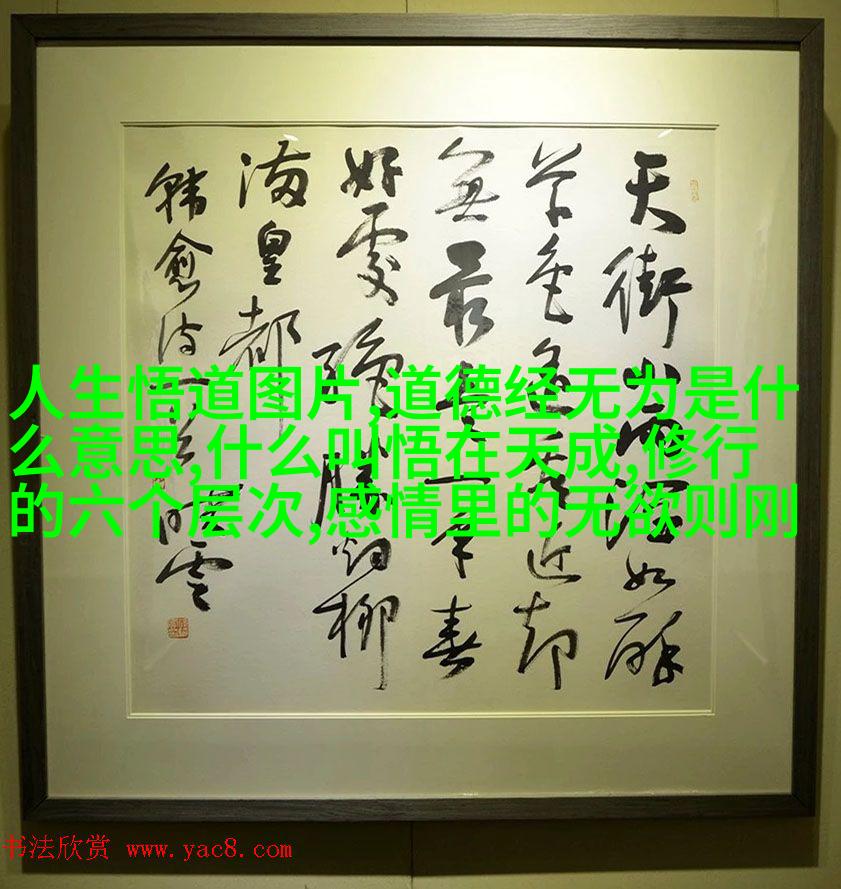 天街小雨潤如酥
草色遙看近却
無最是一年春
好處絕勝烟柳
滿皇都
韓愈詩一首 曉雲
人生悟道图片,道德经无为是什
么意思,什么叫悟在天成,修行
的六个层次,感情里的无欲则刚
书法欣赏 www.yac8.com